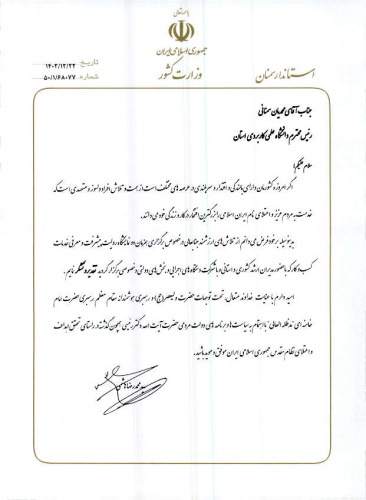 باسمه تعالی
جمهوری اسلامی ایران
وزارت کشور
تاریخ ۱۴۰۲/۱۲/۲۲
شماره ۵۰/۱/۶۸۰۷۷
استاندار سمنان
جناب آقای مهدیان سمنانی
رئیس محترم دانشگاه علمی کاربردی استان
سلام علیکم؛
اگر امروزه کشورمان دارای بالندگی و اقتدار و سربلندی در عرصه های مختلف است از همت و تلاش افراد دلسوز و متعهدی است که
خدمت به مردم عزیز و اعتلای نام ایران اسلامی را بزرگترین افتخار در کار و زندگی خود می دانند.
بدینوسیله بر خود فرض می دانم از تلاش های ارزشمند جنابعالی در خصوص برگزاری همزمان دو نمایشگاه روایت پیشرفت و معرفی خدمات
کسب و کار که با حضور مدیران ارشد کشوری و استانی و با مشارکت دستگاه های اجرایی و بخش های دولتی و خصوصی برگزار گردید تقدیر و تشکر نمایم.
امید دارم با عنایت خداوند متعال، تحت توجهات حضرت ولیعصر(عج) و رهبری هوشمندانه مقام معظم رهبری حضرت امام
خامنه ای "مدظله العالی" با اهتمام به سیاست ها و برنامه های دولت مردمی حضرت آیت اله دکتر رئیسی همچون گذشته در راستای تحقق اهداف
و اعتلای نظام مقدس جمهوری اسلامی ایران موفق و موید باشید.
سید محمدرضا هاشمی